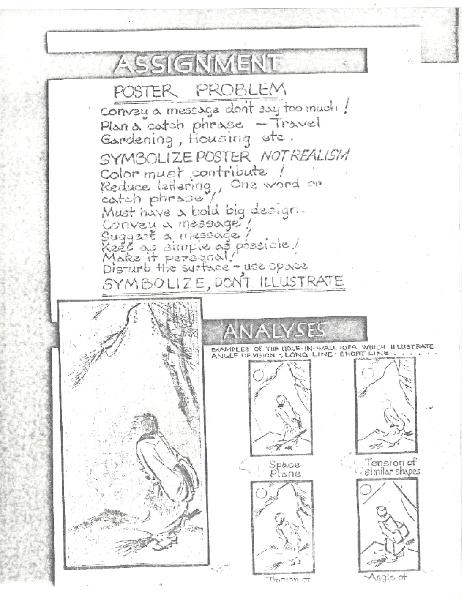 ASSIGNMENT
POSTER PROBLEM
Convey a message don't say too much!
Plan a catch phrase – Travel
Gardening, Housing etc.
SYMBOLIZE POSTER NOT REALISM
Color must contribute!
Reduce lettering, One word or
catch phrase!
Must have a bold big design.
Convey a message!
Suggest a message!
Keep as simple as possible!
Make it personal!
Disturb the surface – use space
SYMBOLIZE, DON'T ILLUSTRATE
ANALYSES
EXAMPLES OF THE HOLE-IN-WALL IDEA WHICH ILLUSTRATE
ANGLE DIVISION, LONG LINE, SHORT LINE . . . . . .
Space
Plane
Tension of
similar shapes
Tension of
Angle of